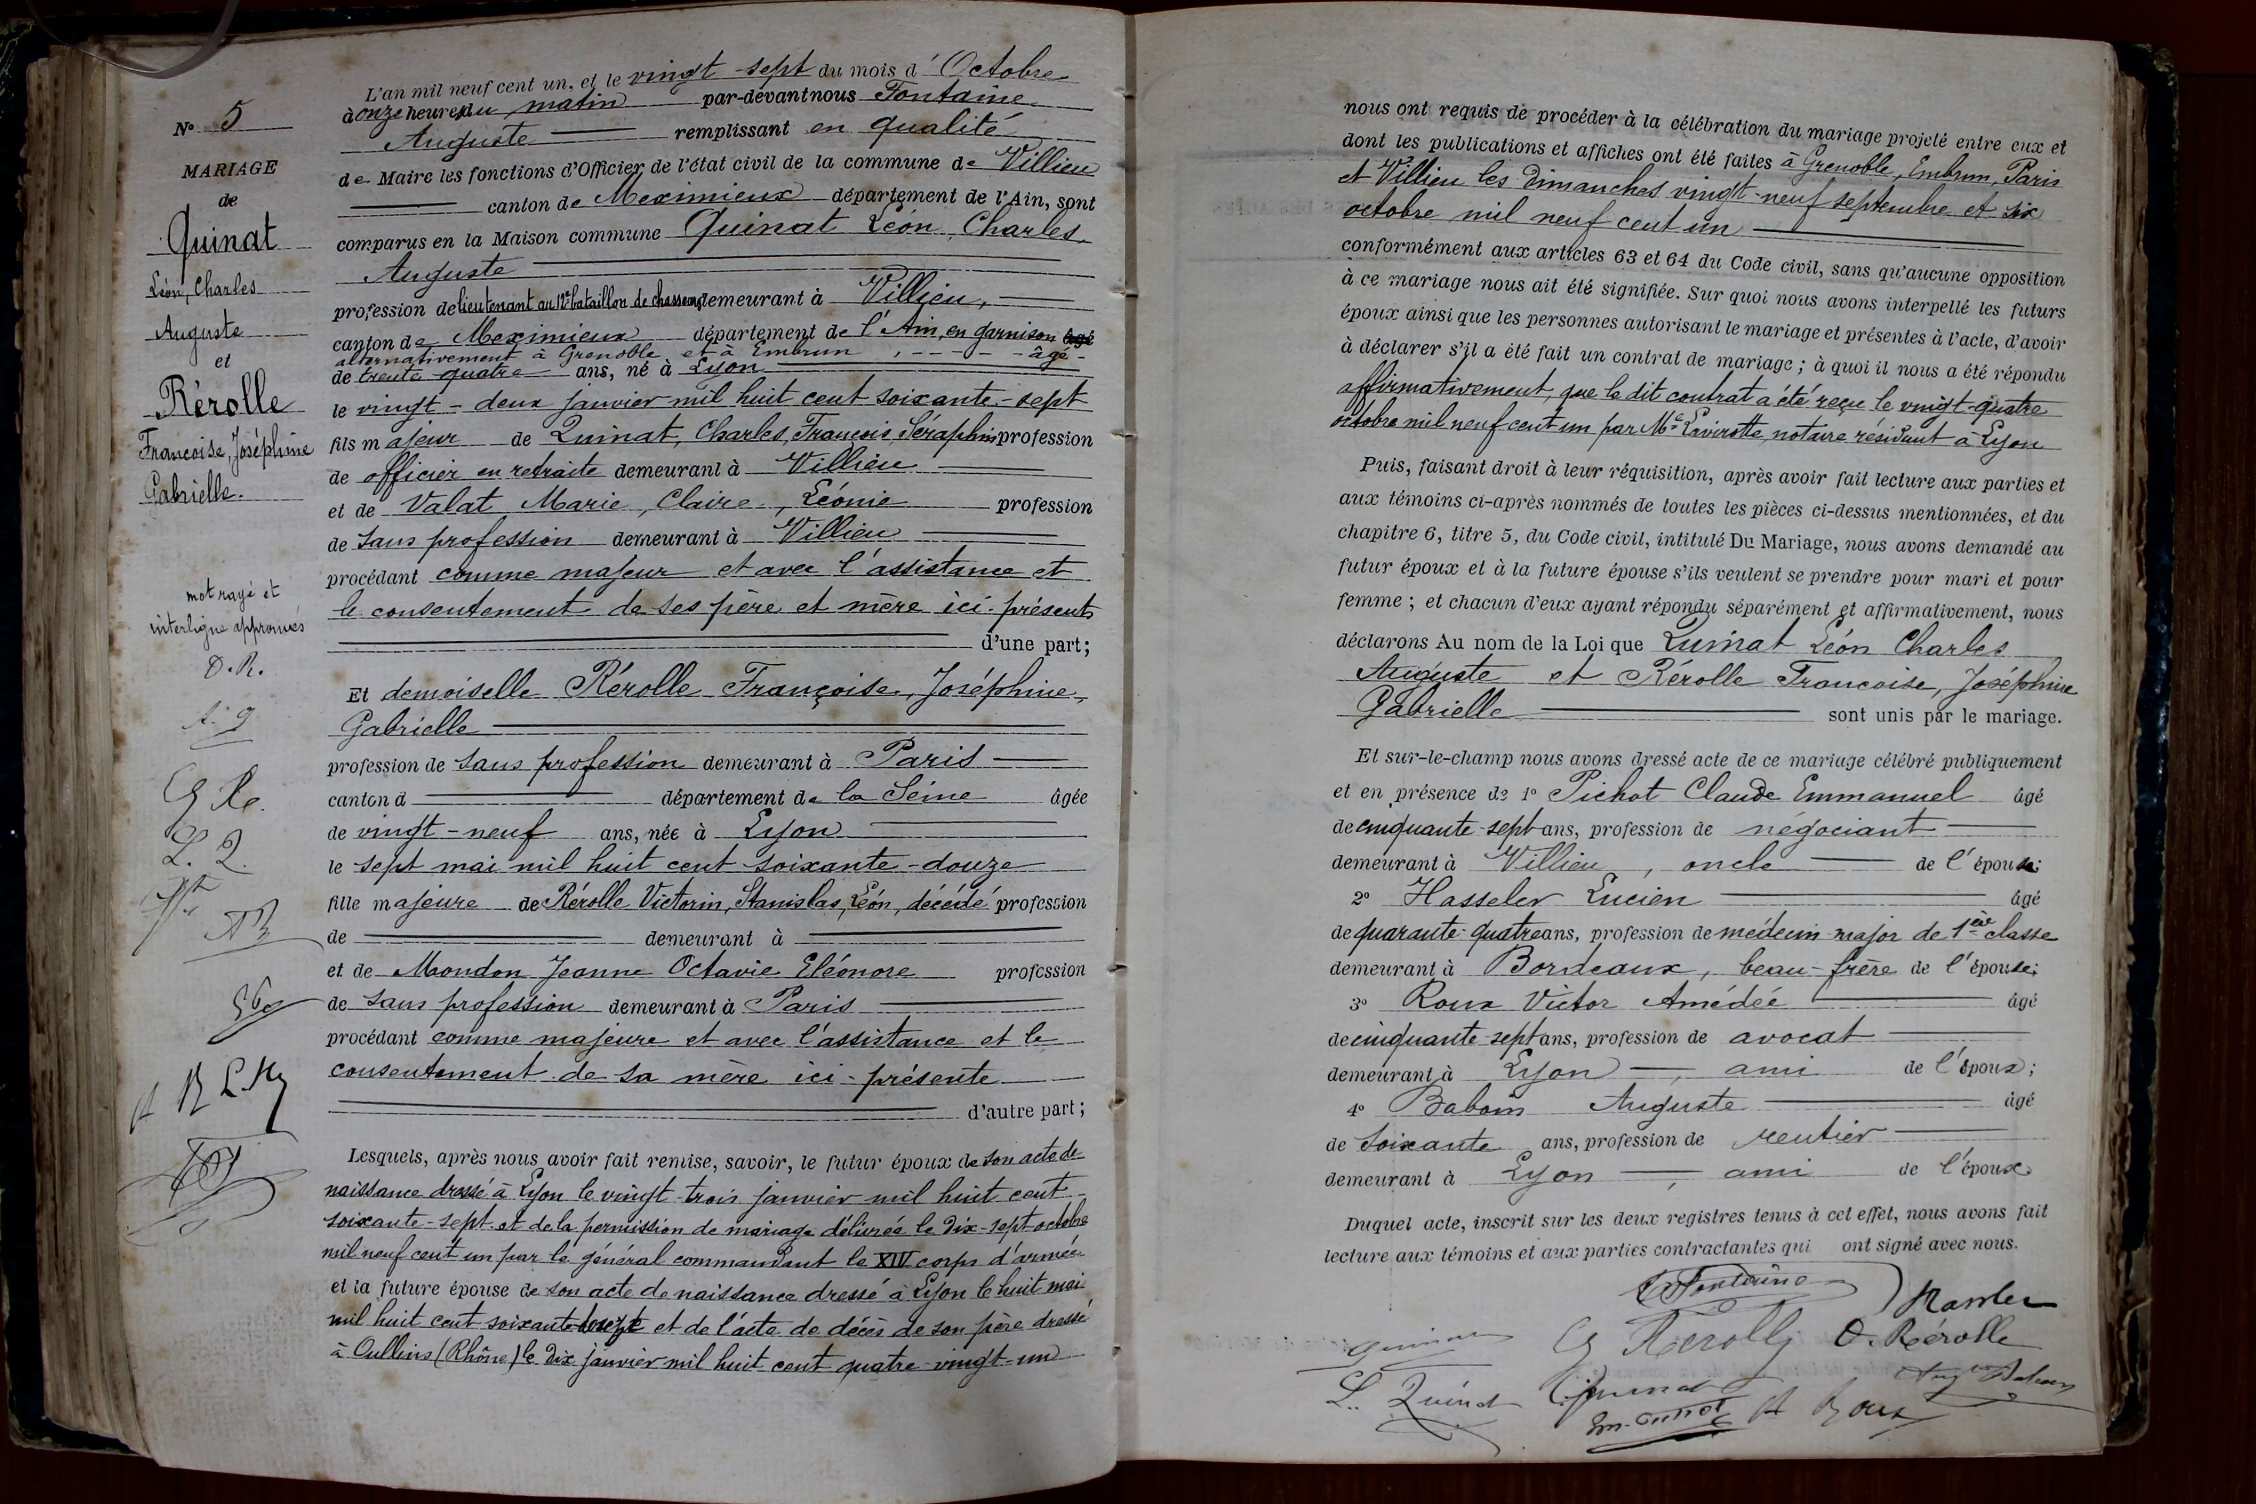 N° 5
MARIAGE
de
Quinat
Léon, Charles
Auguste
et
Rérolle
Françoise, Joséphine
Gabrielle.
mot rayé et
interligne approuvés
O. R.
G Re.
L. Q.
L'an mil neuf cent un, et le vingt-sept du mois d'Octobre
à onze heures du matin par-devant nous Fontaine
Auguste remplissant en qualité
de Maire les fonctions d'Officier de l'état civil de la commune de Villieu
canton de Meximieux département de l'Ain, sont
comparus en la Maison commune Quinat Léon, Charles,
Auguste
profession de lieutenant au 12e bataillon de chasseurs demeurant à Villieu,
canton de Meximieux département de l'Ain, en garnison âgé
alternativement à Grenoble et à Embrun, - - - - âgé -
de trente quatre ans, né à Lyon
le vingt-deux janvier mil huit cent soixante-sept
fils majeur de Quinat, Charles, François Séraphin profession
de officier en retraite demeurant à Villieu
et de Valat Marie, Claire, Léonie profession
de sans profession demeurant à Villieu
procédant comme majeur et avec l'assistance et
le consentement de ses père et mère ici-présents
d'une part;
Et demoiselle Rérolle Françoise, Joséphine,
Gabrielle
profession de sans profession demeurant à Paris
canton d département de la Seine âgée
de vingt-neuf ans, née à Lyon
le sept mai mil huit cent soixante-douze
fille majeure de Rérolle Victorin, Stanislas, Léon, décédé profession
de demeurant à
et de Mondon Jeanne Octavie Eléonore profession
de sans profession demeurant à Paris
procédant comme majeure et avec l'assistance et le
consentement de sa mère ici-présente
d'autre part;
Lesquels, après nous avoir fait remise, savoir, le futur époux de son acte de
naissance dressé à Lyon le vingt-trois janvier mil huit cent
soixante-sept et de la permission de mariage délivrée le dix-sept octobre
mil neuf cent un par le général commandant le XIV corps d'armée
et la future épouse de son acte de naissance dressé à Lyon le huit mai
mil huit cent soixante-douze et de l'acte de décès de son père dressé
à Oullins (Rhône) le dix janvier mil huit cent quatre-vingt-un
nous ont requis de procéder à la célébration du mariage projeté entre eux et
dont les publications et affiches ont été faites à Grenoble, Embrun, Paris
et Villieu les dimanches vingt-neuf septembre et six
octobre mil neuf cent un
conformément aux articles 63 et 64 du Code civil, sans qu'aucune opposition
à ce mariage nous ait été signifiée. Sur quoi nous avons interpellé les futurs
époux ainsi que les personnes autorisant le mariage et présentes à l'acte, d'avoir
à déclarer s'il a été fait un contrat de mariage; à quoi il nous a été répondu
affirmativement, que le dit contrat a été reçu le vingt-quatre
octobre mil neuf cent un par Me Lavirotte notaire résidant à Lyon
Puis, faisant droit à leur réquisition, après avoir fait lecture aux parties et
aux témoins ci-après nommés de toutes les pièces ci-dessus mentionnées, et du
chapitre 6, titre 5, du Code civil, intitulé Du Mariage, nous avons demandé au
futur époux et à la future épouse s'ils veulent se prendre pour mari et pour
femme; et chacun d'eux ayant répondu séparément et affirmativement, nous
déclarons Au nom de la Loi que Quinat Léon Charles
Auguste et Rérolle Françoise, Joséphine
Gabrielle sont unis par le mariage.
Et sur-le-champ nous avons dressé acte de ce mariage célébré publiquement
et en présence de 1° Pichot Claude Emmanuel âgé
de cinquante-sept ans, profession de négociant
demeurant à Villieu, oncle de l'épouse;
2° Hassler Lucien âgé
de quarante-quatre ans, profession de médecin-major de 1ère classe
demeurant à Bordeaux, beau-frère de l'épouse;
3° Roux Victor Amédée âgé
de cinquante-sept ans, profession de avocat
demeurant à Lyon, ami de l'époux;
4° Baboin Auguste âgé
de soixante ans, profession de rentier
demeurant à Lyon, ami de l'époux
Duquel acte, inscrit sur les deux registres tenus à cet effet, nous avons fait
lecture aux témoins et aux parties contractantes qui ont signé avec nous.
Fontaine Hassler
G Rérolle O. Rérolle
L. Quinat A Roux